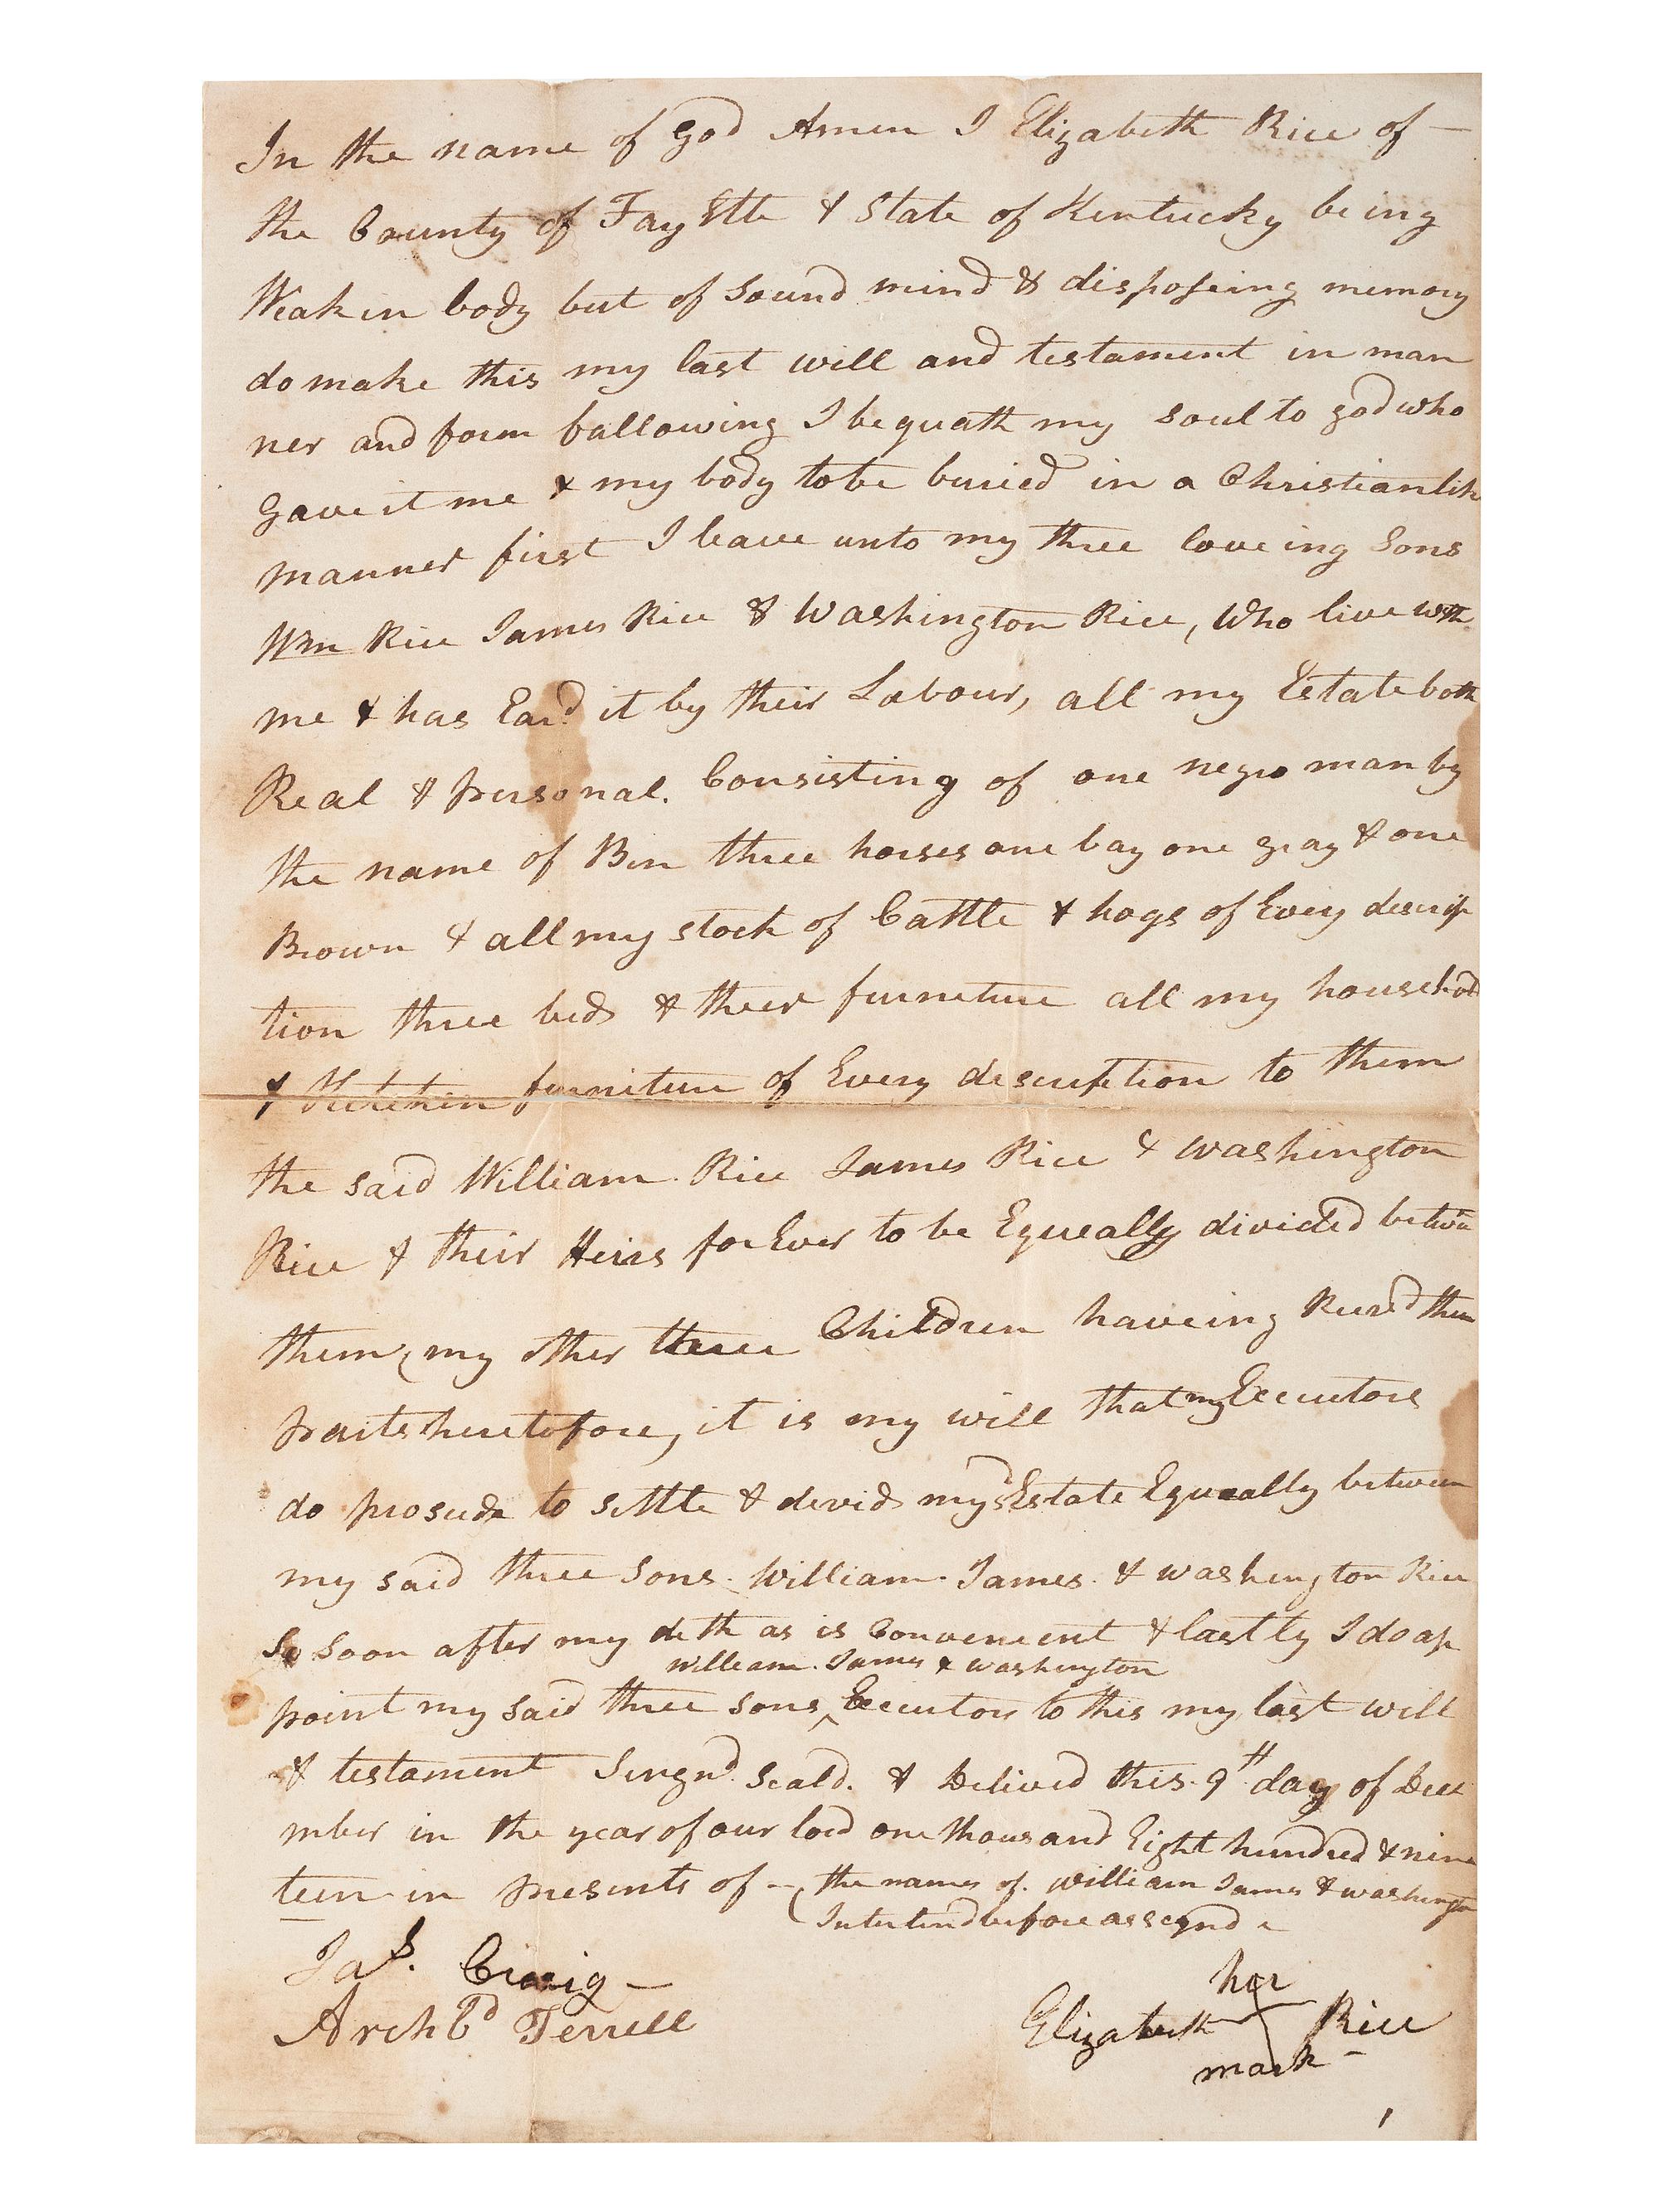 In the name of God Amen I Elizabeth Rice of —
the County of Fay Ette & State of Kentucky being
Weak in body but of Sound mind & disposeing memory
do make this my last will and testament in man
ner and form fallowing I bequath my soul to god who
gave it me & my body to be buried in a Christianlik
manner first I leave unto my three loveing Sons
Wm Rice James Rice & Washington Rice, Who live with
me & has Eard it by their Labour, all my Estate both
Real & personal. Consisting of one negro man by
the name of Ben three horses one bay one gray & one
Brown & all my stock of Cattle & hogs of Every descrip
tion three beds & their furneture all my household
& Kitchen furniture of Every description to them
the said William Rice James Rice & Washington
Rice & their Heirs forEver to be Equeally divided betwen
them, (my other three Children haveing Recivd their
parts heretofore, it is my will that my Executors
do prosude to settle & devid my sd Estate Equeally between
my said three Sons. William. James. & Washington Rice
So Soon after my deth as is Conveneient & lastly I do ap
William. James & Washington
point my said three sons ^ Executors to this my last will
& testament Singnd. Seald. & Delived this 9th day of Dece
mber in the year of our lord one thousand Eight hundred & nine
teen in presents of — (the names of. William James & Washington
Interlind before assignd
Jas. Craig —
Archbd Terrell
her
Elizabeth Rice
mark —